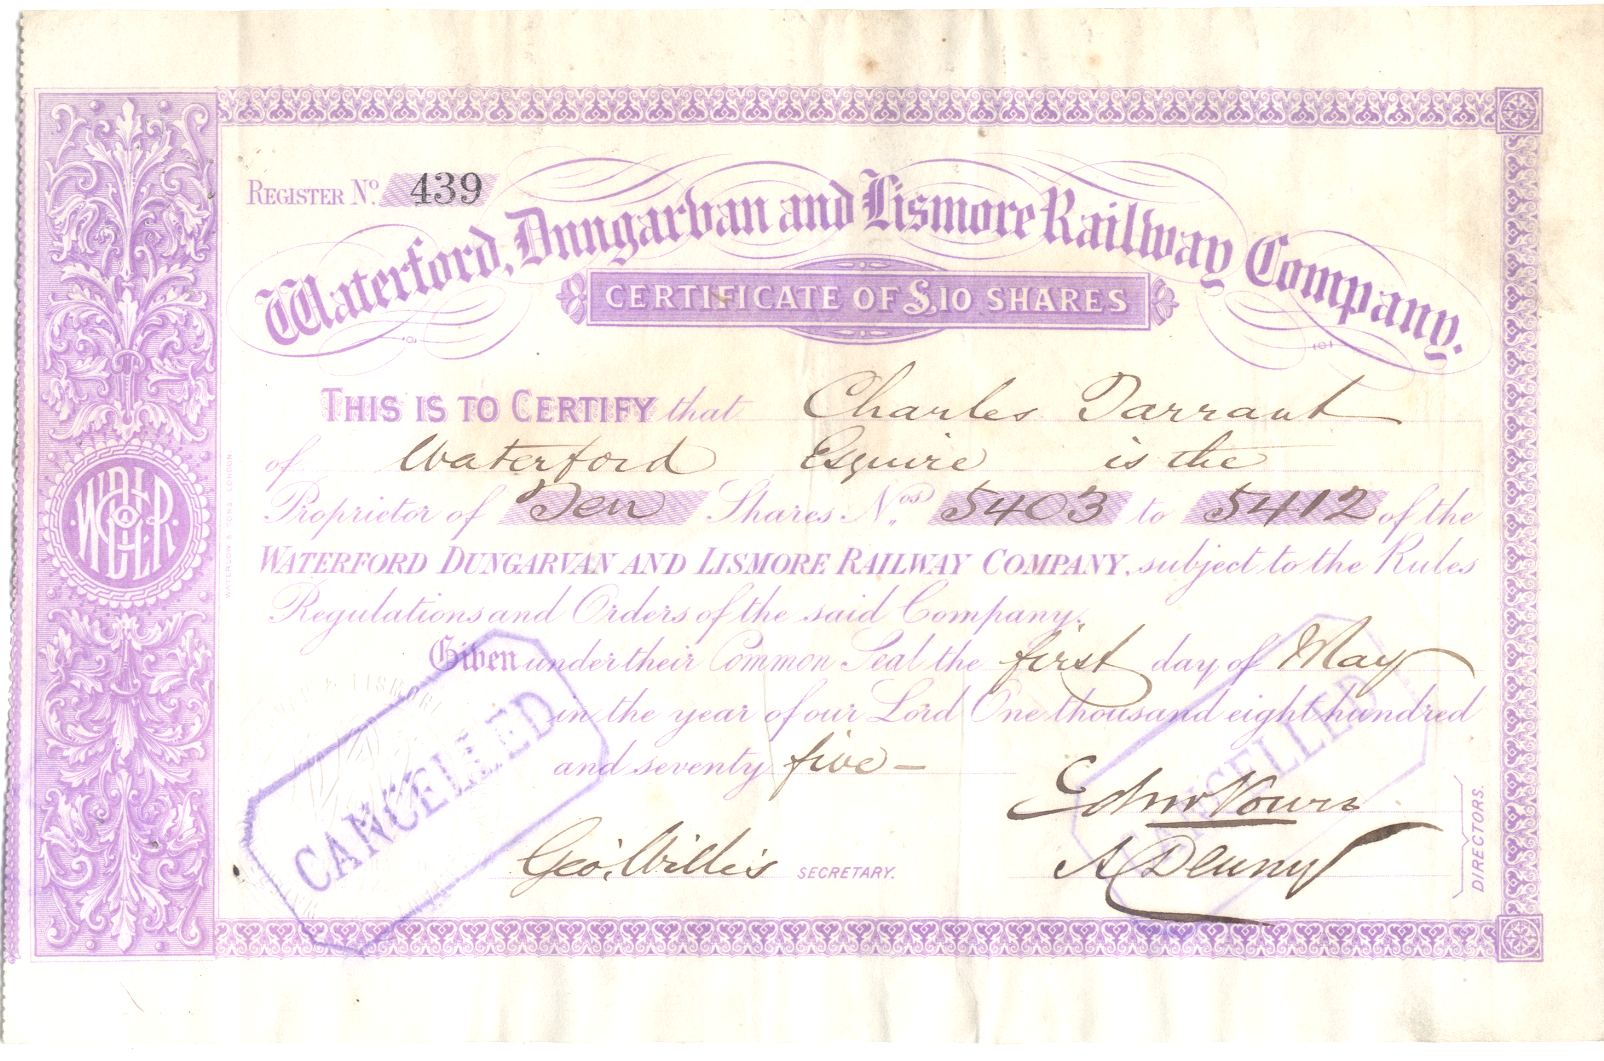 REGISTER Nº. 439
Waterford, Dungarvan and Lismore Railway Company.
CERTIFICATE OF £10 SHARES
THIS IS TO CERTIFY that Charles Tarrant
of Waterford Esquire is the
Proprietor of Ten Shares Nos. 5403 to 5412 of the
WATERFORD DUNGARVAN AND LISMORE RAILWAY COMPANY, subject to the Rules
Regulations and Orders of the said Company.
Given under their Common Seal the first day of May
in the year of our Lord One thousand eight hundred
and seventy five –
CANCELLED
CANCELLED
Geo. Willis SECRETARY.
A Denny
DIRECTORS.
WATERLOW & SONS LONDON